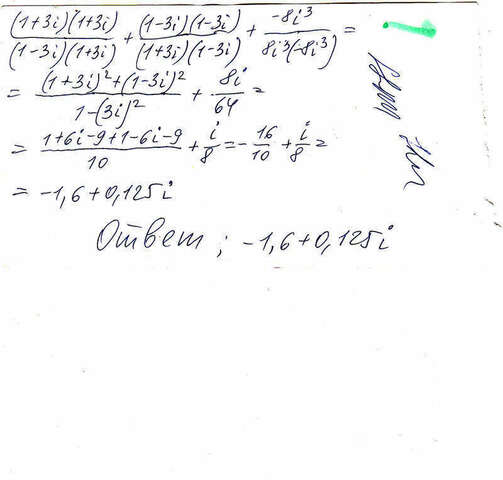 (1+3i)(1+3i)/(1-3i)(1+3i) + (1-3i)(1-3i)/(1+3i)(1-3i) + -8i³/8i³(-8i³) =
= (1+3i)²+(1-3i)²/1-(3i)² + 8i/64 =
= 1+6i-9+1-6i-9/10 + i/8 = -16/10 + i/8 =
= -1,6+0,125i
Ответ; -1,6+0,125i